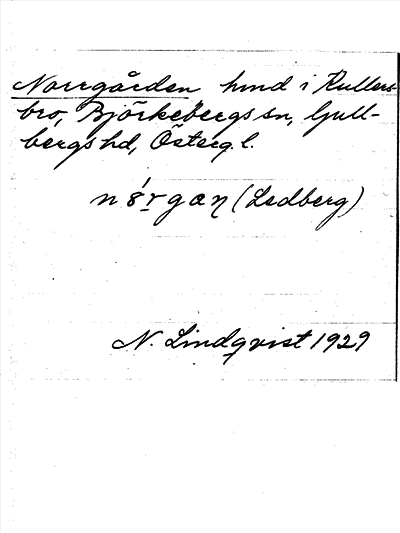 Norrgården hmd i Kullers-
bro, Björkebergs sn, Gull-
bergs hd, Österg. l.
(Ledberg)
N. Lindqvist 1929